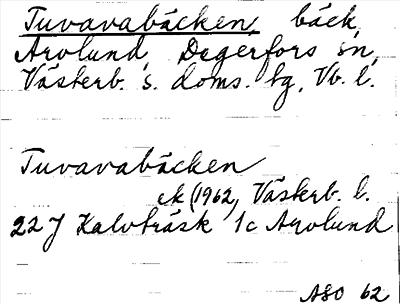 Tuvavabäcken, bäck,
Arolund, Degerfors sn,
Västerb. s. doms. tg, Vb. l.
Tuvavabäcken
ek (1962, Västerb. l.
22 J Kalvträsk 1c Arolund
ASO 62